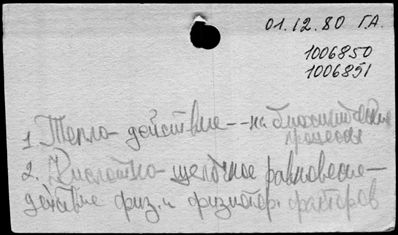 01.12.80 Г.А.
1006850
1006851
1. Тепло- действие -- на биологические
процессы
2. Кислотно- щелочное равновесие-
действие физ. и физиотер. факторов